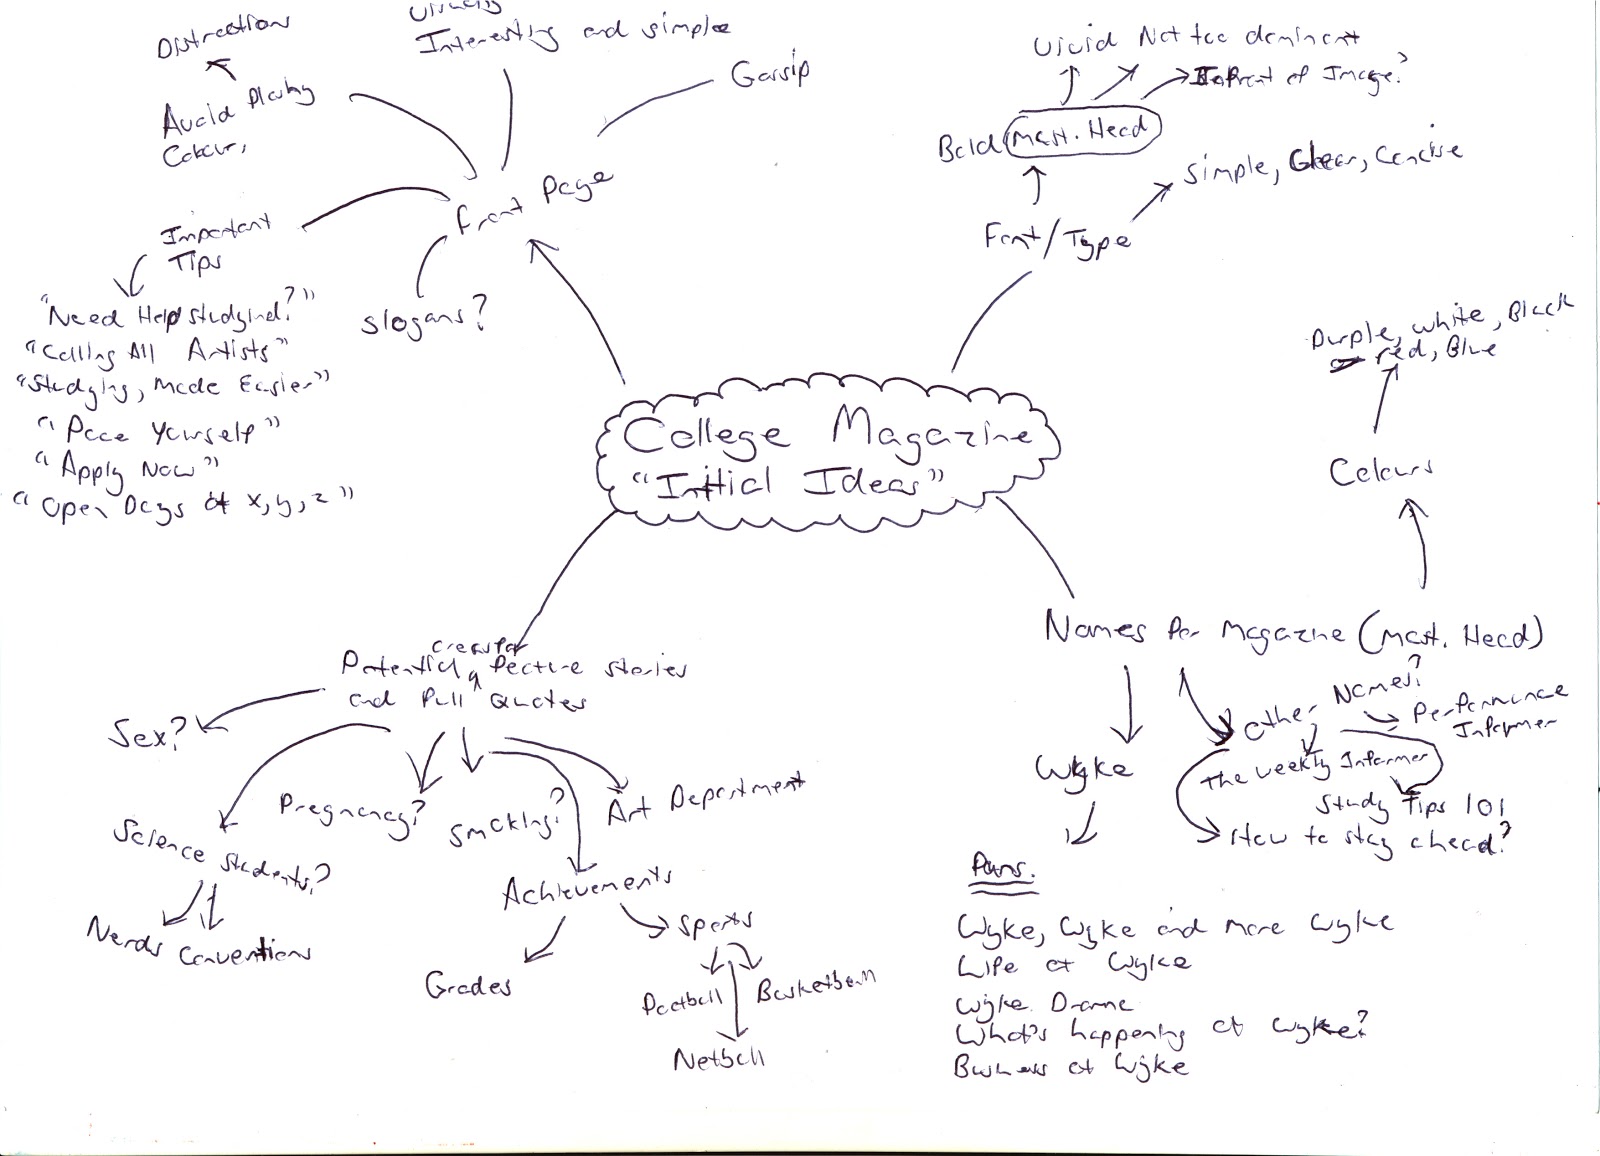 Distraction
Avoid Plashy
Colour,
Visually
Interesting and simple
Gossip
Front Page
Important
Tips
"Need Help studying?"
"Calling All Artists"
"Studying, Made Easier"
"Pace Yourself"
"Apply Now"
"Open Days at x, y, z"
slogans?
Vivid Not too dominent
In front of Image?
Bold Mast. Head
simple, Clear, Concise
Font/Type
Purple, white, Black
red, Blue
Colours
College Magazine
"Initial Ideas"
Names for Magazine (Mast. Head)
Wyke
Other Names?
Performance
Informer
The Weekly Informer
Study Tips 101
How to stay ahead?
Puns.
Wyke, Wyke and more Wyke
Life at Wyke
Wyke Drama
What's happening at Wyke?
Business at Wyke
Potential feature stories
and Pull Quotes
Sex?
Science students?
Nerds Conventions
Pregnancy?
Smoking?
Art Department
Achievements
Grades
Sports
Football
Basketball
Netball